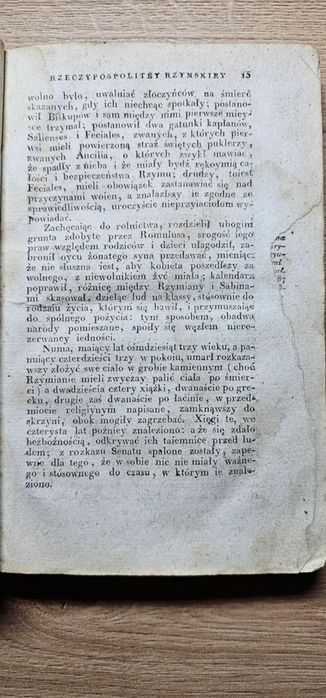 RZECZYPOSPOLITEY RZYMSKIEY 15
wolno było, uwalniać złoczyńców na śmierć
skazanych, gdy ich niechcąc spotkały; postano-
wił Biskupow i sam między nimi pierwsze miey-
sce trzymał; postanowił dwa gatunki kapłanów,
Salienses i Feciales, zwanych, z których pier-
wsi mieli powierzoną straż świętych puklerzy,
zwanych Ancilia, o których zwykł mawiać,
że spadły z nieba i że miały bydź rękoymią ca-
łości i bezpieczeństwa Rzymu; drudzy, toiest
Feciales, mieli obowiązek zastanawiać się nad
przyczynami woien, a znalazłszy ie zgodne ze
sprawiedliwością, uroczyście nieprzyiaciołom wy-
powiadać.
Zachęcaiąc do rolnictwa, rozdzielił ubogim
grunta zdobyte przez Romulusa, srogość iego
praw względem rodziców i dzieci ułagodził, za-
bronił oycu żonatego syna przedawać, mieniąc:
że nie słuszna iest, aby kobieta poszedłszy za
wolnego, z niewolnikiem żyć miała; kalendarz
poprawił, różnicę między Rzymiany i Sabina-
mi skasował, dzieląc lud na klassy, stósownie do
rodzaiu życia, którym się bawił, i przymuszaiąc
do spólnego pożycia: tym sposobem, obadwa
narody pomieszane, spoiły się węzłem niero-
zerwanéy iedności.
Numa, maiący lat ośmdziesiąt trzy wieku, a pa-
nuiący czterdzieści trzy w pokoiu, umarł rozkaza-
wszy złożyć swe ciało w grobie kamiennym (choć
Rzymianie mieli zwyczay palić ciała po śmier-
ci) a dwadzieścia cztery xiążki, dwanaście po gre-
cku, drugie zaś dwanaście po łacinie, w przed-
miocie religiynym napisane, zamknąwszy do
skrzyni, obok mogiły zagrzebać. Xięgi te, we
czterysta lat poźniey znaleziono: a że się zdało
bezbożnością, odkrywać ich taiemnice przed lu-
dem; z rozkazu Senatu spalone zostały, zape-
wne dla tego, że w sobie nic nie miały ważne-
go i stósownego do czasu, w którym ie znale-
ziono.